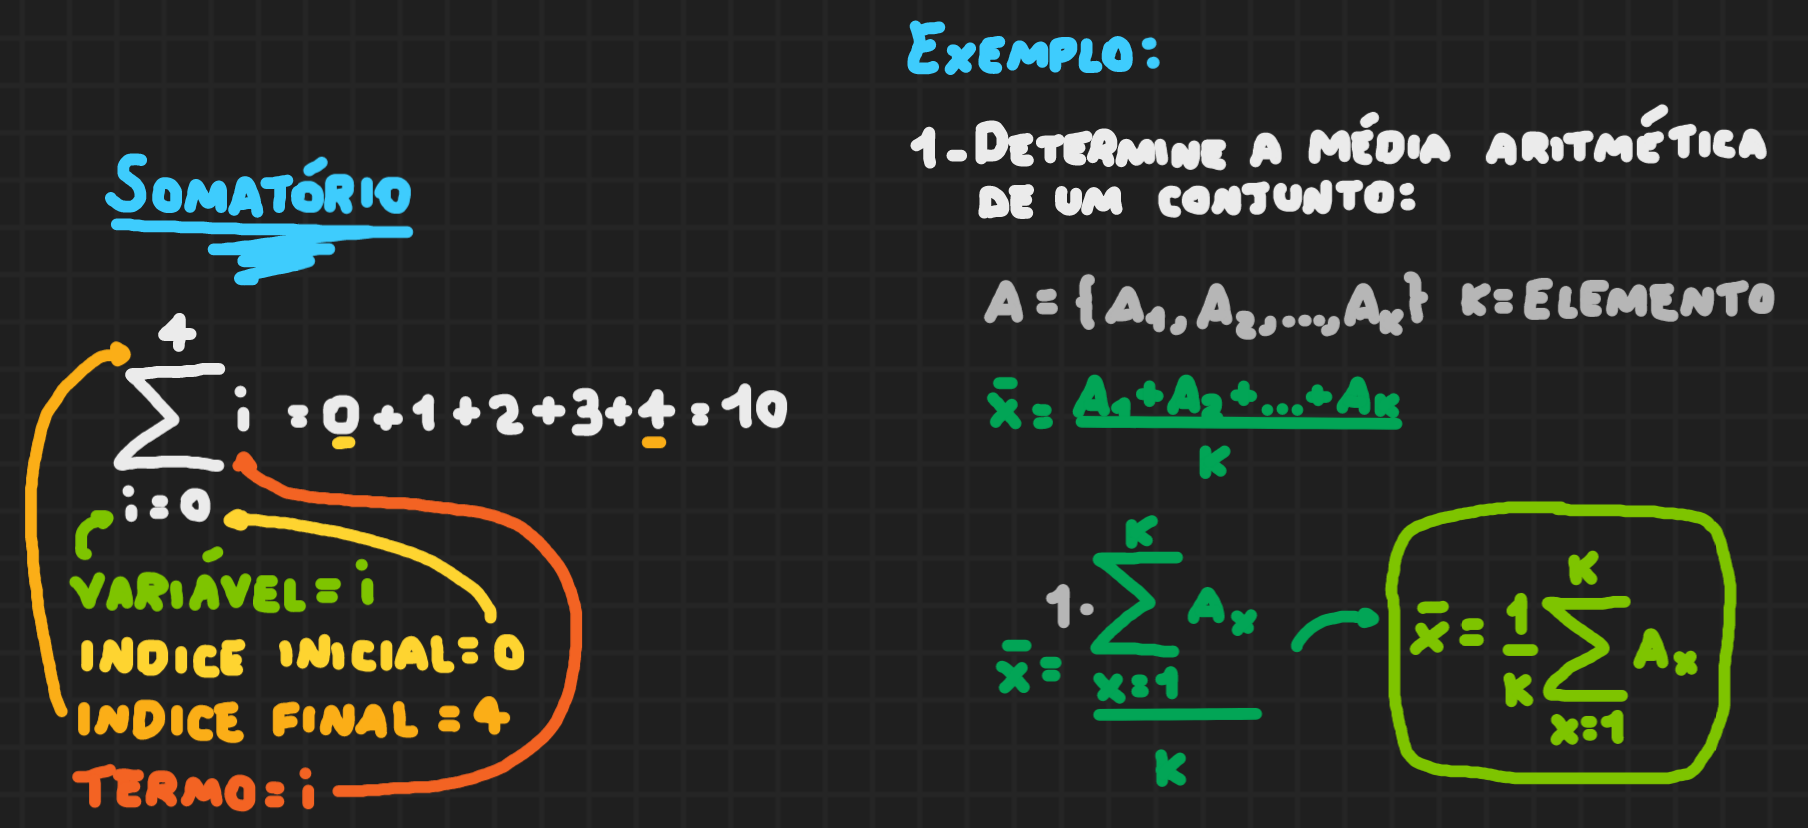 SOMATÓRIO
4
∑ i = 0 + 1 + 2 + 3 + 4 = 10
i = 0
VARIÁVEL = i
INDICE INICIAL = 0
INDICE FINAL = 4
TERMO = i
EXEMPLO:
1 - DETERMINE A MÉDIA ARITMÉTICA
DE UM CONJUNTO:
A = {A₁, A₂, ..., Aₖ} K = ELEMENTO
x̄ = A₁ + A₂ + ... + Aₖ
K
K
1 · ∑ Aₓ
x̄ =
x = 1
K
K
x̄ = 1/K ∑ Aₓ
x = 1